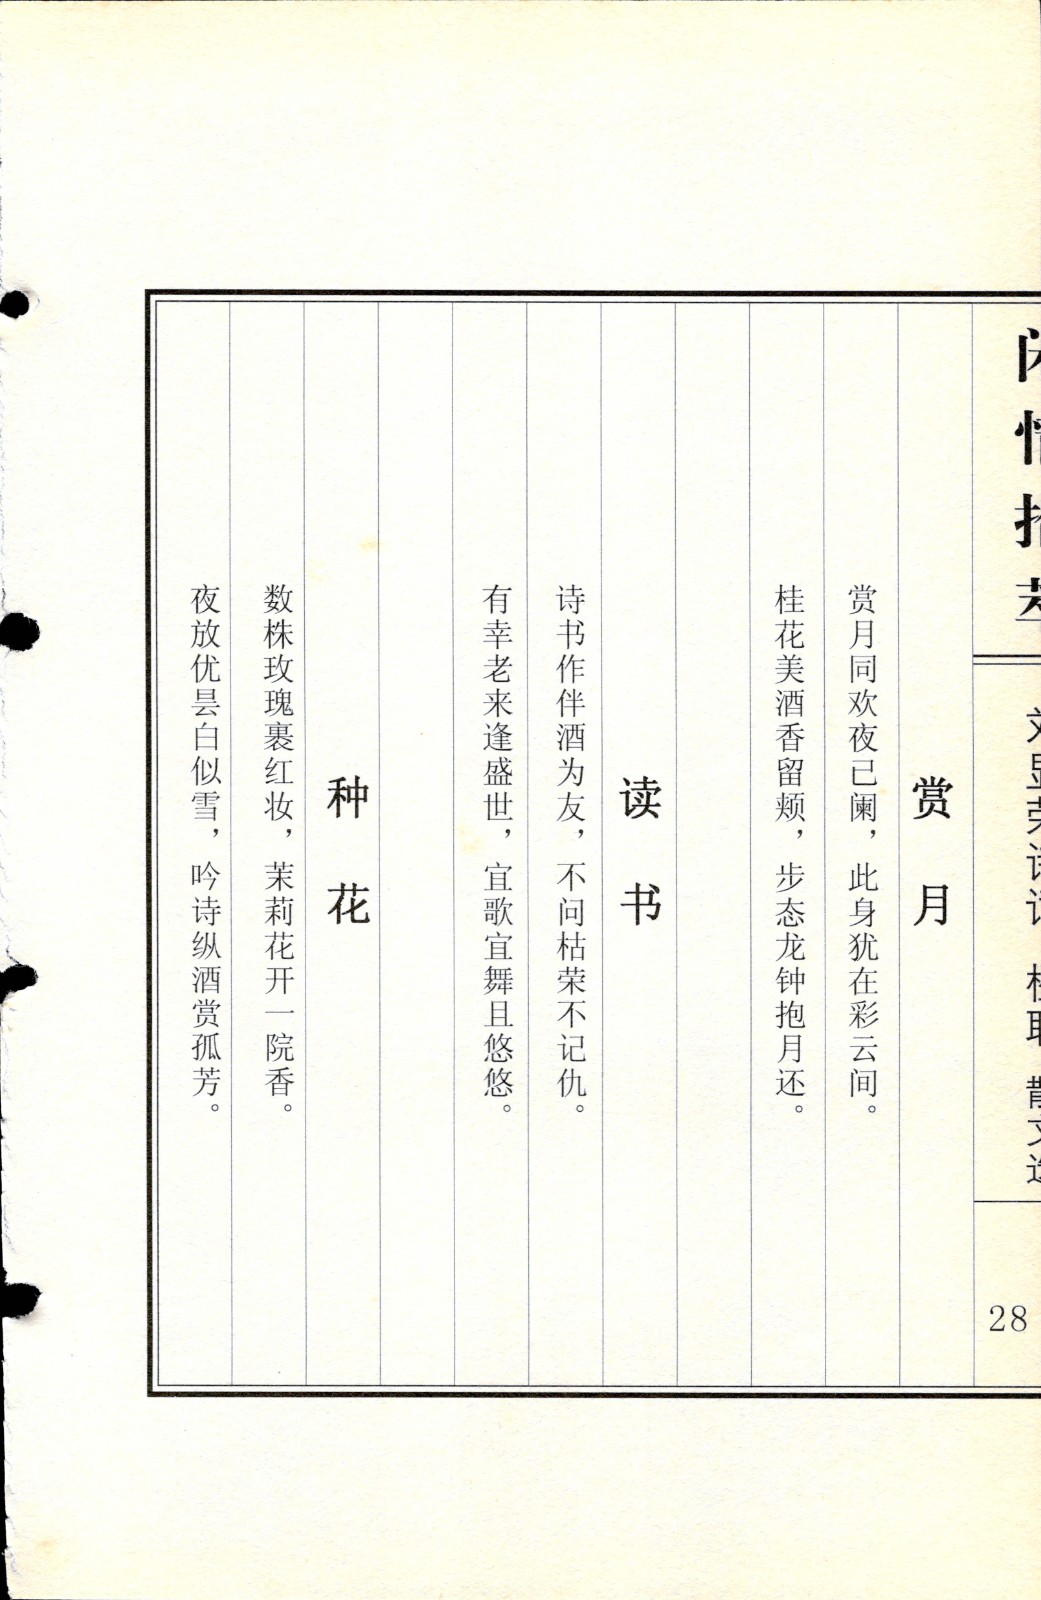 赏月
赏月同欢夜已阑，此身犹在彩云间。
桂花美酒香留颊，步态龙钟抱月还。
读书
诗书作伴酒为友，不问枯荣不记仇。
有幸老来逢盛世，宜歌宜舞且悠悠。
种花
数株玫瑰裹红妆，茉莉花开一院香。
夜放优昙白似雪，吟诗纵酒赏孤芳。
28